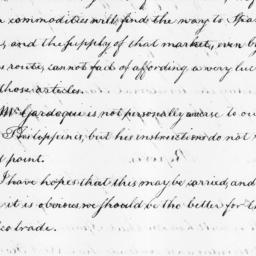 commodities will find the way to Spa
and the supply of that market, even b
route, cannot fail of affording a very luc
those articles.
Mr. Gardoqui is not personally averse to ou
Philippines, but his instructions do not
point.
I have hopes that this may be carried, and
it is obvious we should be the better for th
trade.